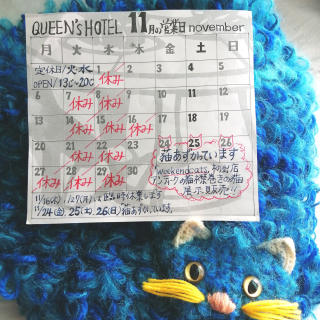 QUEEN'S HOTEL 11月の営業日 november
月 火 水 木 金 土 日
定休日/火・水 1 休み 2 3 4 5
OPEN/13時〜20時
6 7 休み 8 休み 9 10 11 12
13 14 休み 15 休み 16 休み 17 18 19
20 21 休み 22 休み 23 24 25 26
27 休み 28 休み 29 休み 30
猫あずかっています
weekendcats. 初出店
アンティークの猫や襟巻きの猫
展示販売!!
11/16(木)、1/27(月)は臨時休業します
11/24(金)、25(土)、26(日)猫あずかっています。